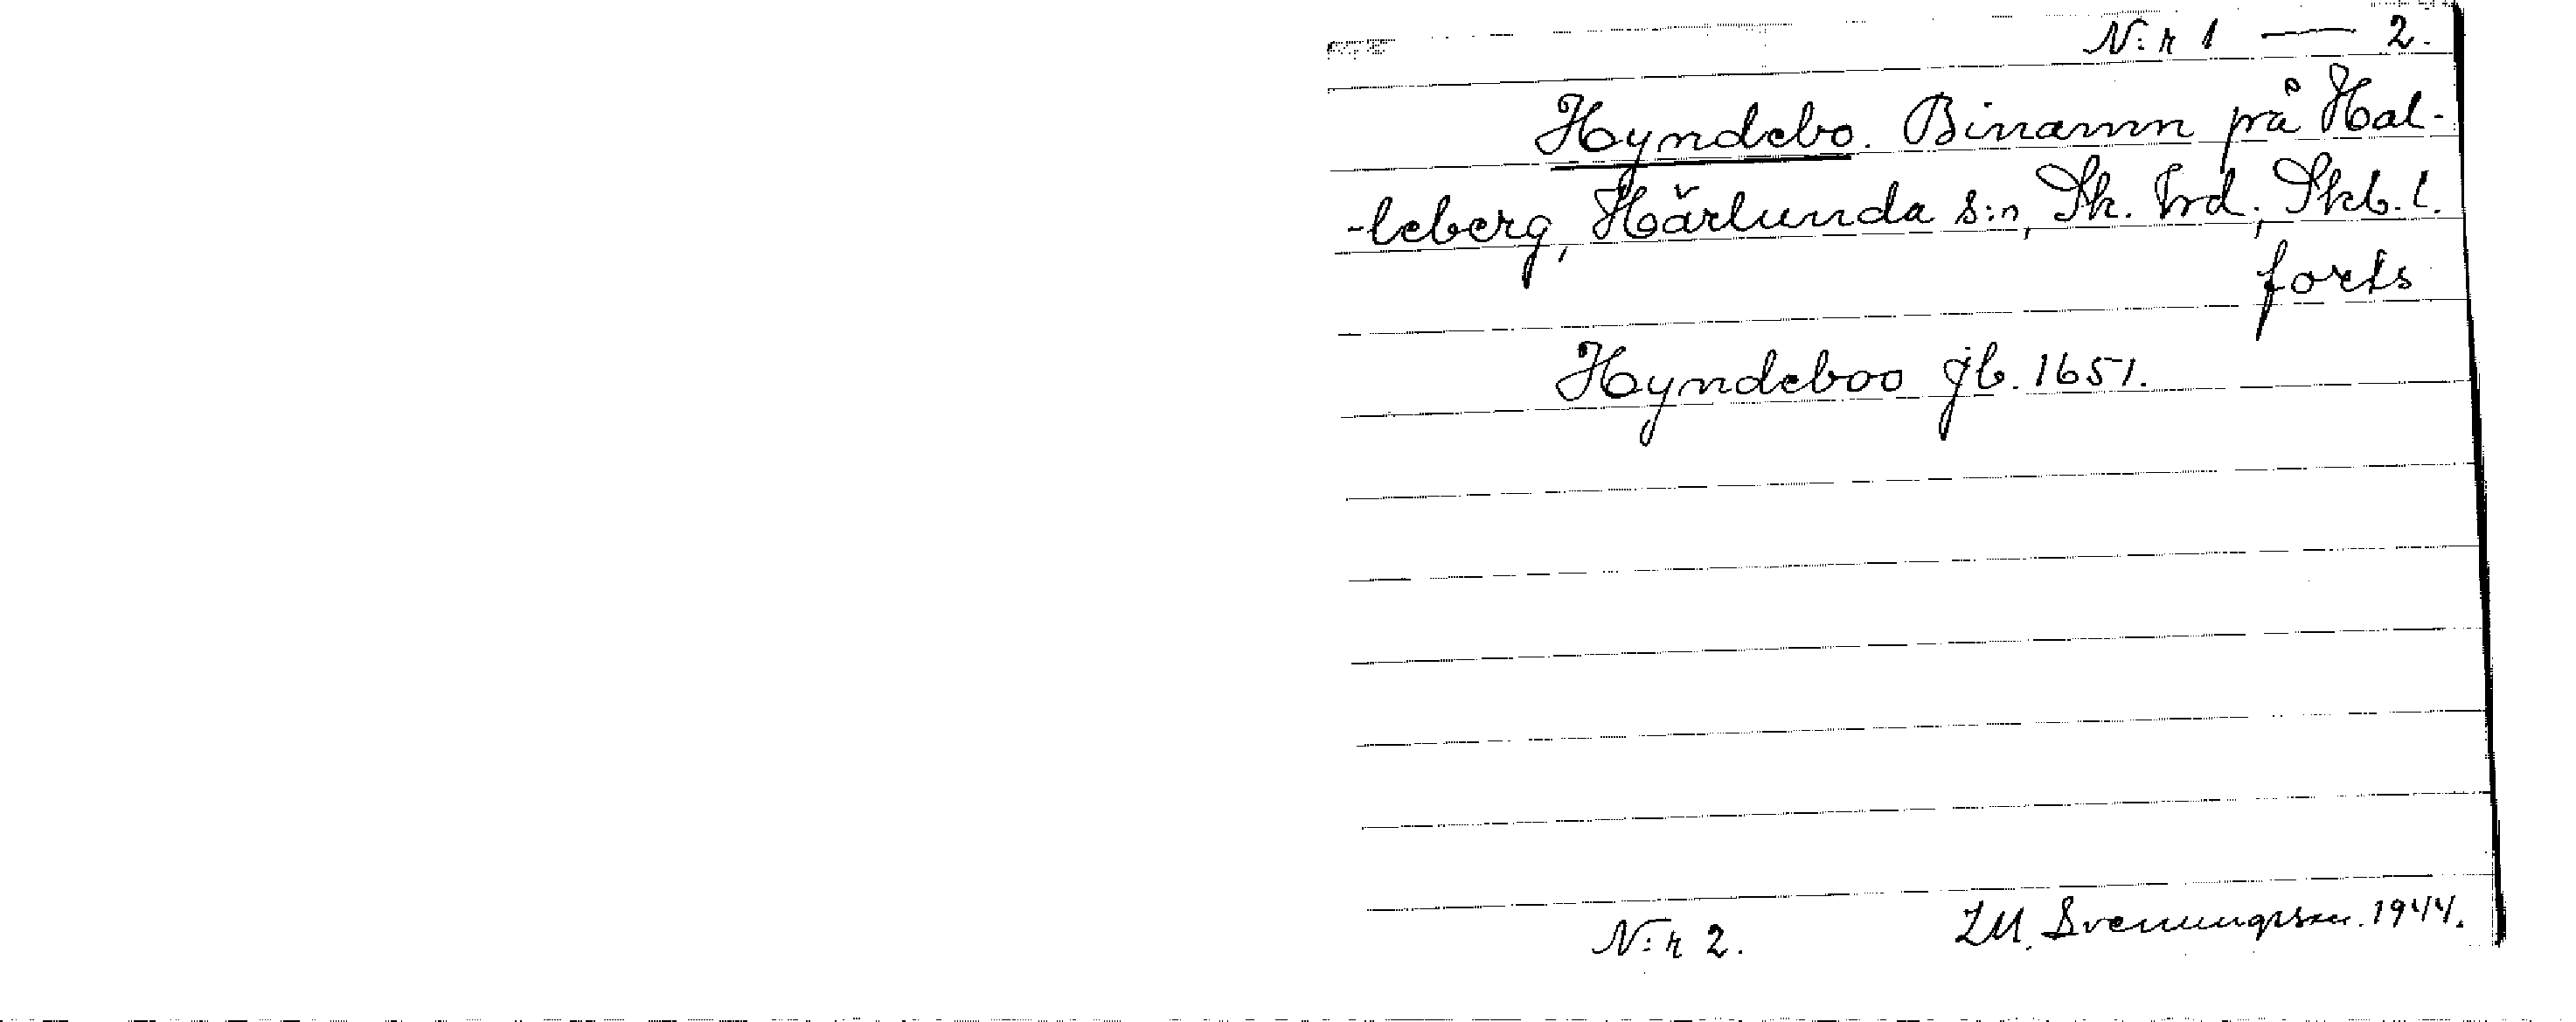 N:r 1 — 2.
Hyndebo. Binamn på Hal-
-leberg, Härlunda s:n, Sk. hrd; Skb. l.
forts
Hyndeboo jb. 1651.
N:r 2. Svenungsson. 1944.